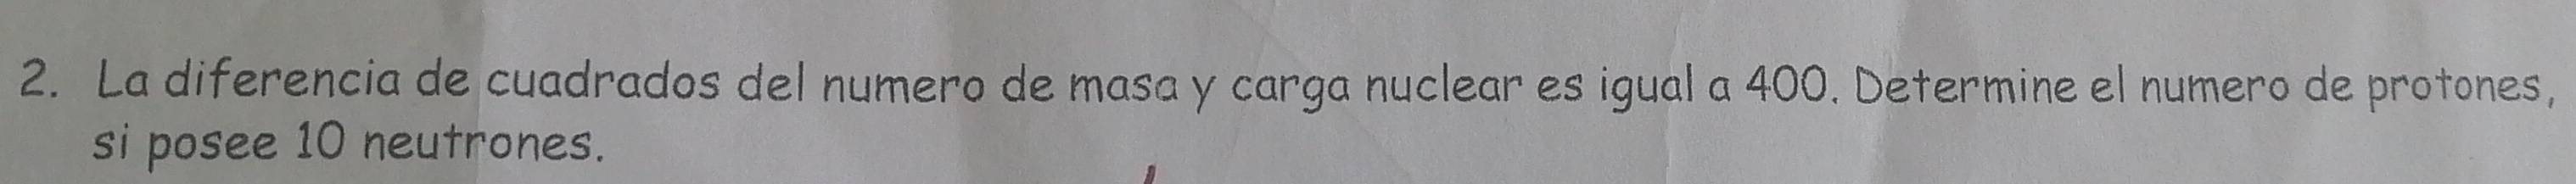 2. La diferencia de cuadrados del numero de masa y carga nuclear es igual a 400. Determine el numero de protones,
si posee 10 neutrones.